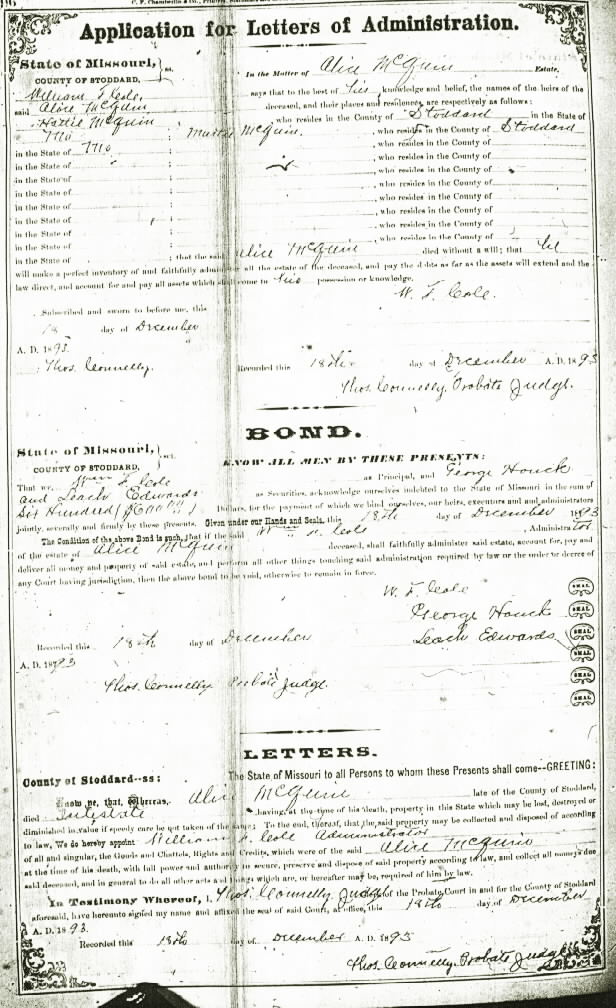 Application for Letters of Administration.
State of Missouri, } ss.
COUNTY OF STODDARD,
In the Matter of Alice McGuin Estate,
William F. Cole, says that to the best of his knowledge and belief, the names of the heirs of the
said Alice McGuin deceased, and their places and residences, are respectively as follows:
Hattie McGuin , who resides in the County of Stoddard in the State of
Mo ; McGuin , who resides in the County of Stoddard
in the State of Mo ; , who resides in the County of
in the State of ; , who resides in the County of
in the State of ; , who resides in the County of
in the State of ; , who resides in the County of
in the State of ; , who resides in the County of
in the State of ; , who resides in the County of
in the State of ; , who resides in the County of
in the State of ; , who resides in the County of
in the State of ; that the said Alice McGuin died without a will; that he
will make a perfect inventory of and faithfully administer all the estate of the deceased, and pay the debts as far as the assets will extend and the
law direct, and account for and pay all assets which shall come to his possession or knowledge.
W. F. Cole.
Subscribed and sworn to before me, this
18 day of December
A. D. 1893.
Thos. Connelly.
Recorded this 18th day of December A. D. 1893
Thos. Connelly, Probate Judge.
BOND.
State of Missouri, } sct.
COUNTY OF STODDARD,
KNOW ALL MEN BY THESE PRESENTS:
That we, Wm F. Cole as Principal, and George Houck
and Leach Edwards as Securities, acknowledge ourselves indebted to the State of Missouri in the sum of
Six Hundred Dollars, for the payment of which we bind ourselves, our heirs, executors and administrators
jointly, severally and firmly by these presents. Given under our Hands and Seals, this 18th day of December 1893
The Condition of the above Bond is such, that if the said Cole , Administrator
of the estate of Alice McGuin deceased, shall faithfully administer said estate, account for, pay and
deliver all money and property of said estate, and perform all other things touching said administration required by law or the order or decree of
any Court having jurisdiction, then the above bond to be void, otherwise to remain in force.
W. F. Cole SEAL
George Houck SEAL
Leach Edwards SEAL
SEAL
SEAL
SEAL
Recorded this 18th day of December
A. D. 1893
Thos. Connelly Probate Judge.
LETTERS.
County of Stoddard--ss: The State of Missouri to all Persons to whom these Presents shall come--GREETING:
Know ye, that, Whereas, Alice McGuin late of the County of Stoddard,
died Intestate having, at the time of his death, property in this State which may be lost, destroyed or
diminished in value if speedy care be not taken of the same; To the end, thereof, that the said property may be collected and disposed of according
to law, We do hereby appoint William F. Cole Administrator
of all and singular, the Goods and Chattels, Rights and Credits, which were of the said Alice McGuin
at the time of his death, with full power and authority to secure, preserve and dispose of said property according to law, and collect all moneys due
said deceased, and in general to do all other acts and things which are, or hereafter may be, required of him by law.
In Testimony Whereof, I, Thos. Connelly Judge of the Probate Court in and for the County of Stoddard
aforesaid, have hereunto signed my name and affixed the seal of said Court, at office, this 18th day of December
A. D. 1893.
Recorded this 18th day of December A. D. 1893
Thos. Connelly, Probate Judge